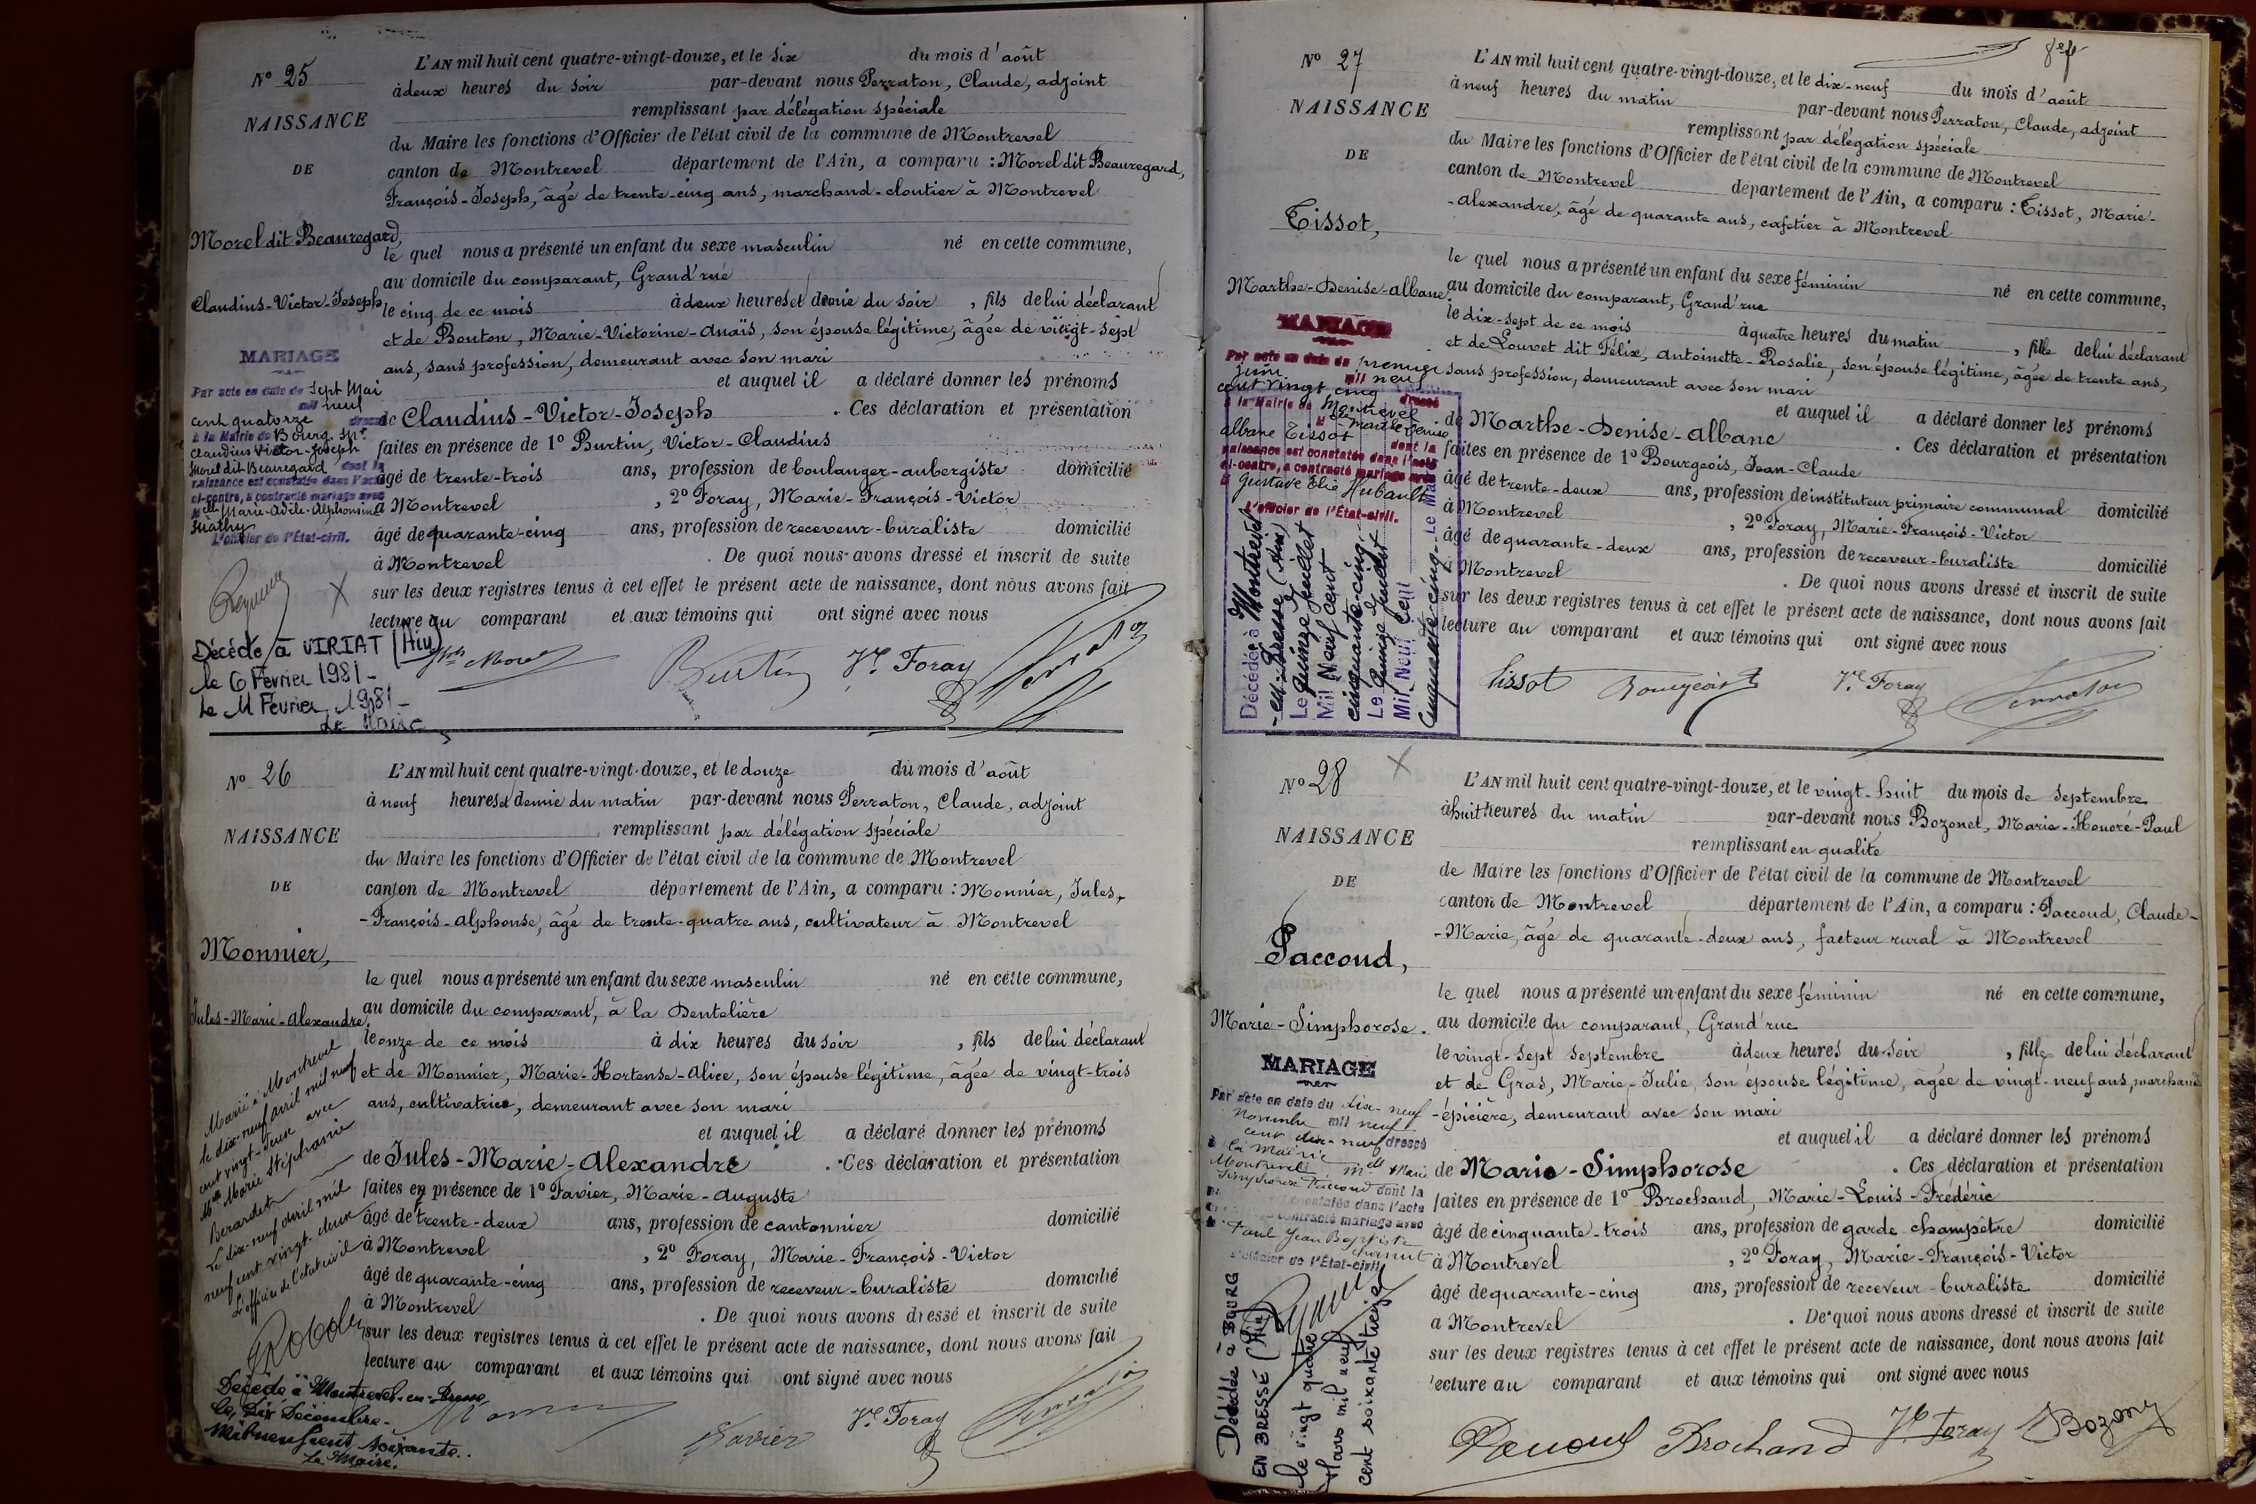 N° 25
NAISSANCE
DE
Morel dit Beauregard,
Claudius-Victor-Joseph
MARIAGE
Par acte en date du Sept Mai
mil neuf
cent quatorze dressé
à la Mairie de Bourg, Mr
Claudius Victor-Joseph
Morel dit Beauregard dont la
naissance est constatée dans l'acte
ci-contre, a contracté mariage avec
Melle Marie-Adèle-Alphonsine
L'officier de l'État-civil.
Décédé à VIRIAT (Ain)
le 6 Février 1981 -
Le 11 Février 1981 -
Le Maire
L'AN mil huit cent quatre-vingt-douze, et le six du mois d'août
à deux heures du soir par-devant nous Perraton, Claude, adjoint
remplissant par délégation spéciale
du Maire les fonctions d'Officier de l'état civil de la commune de Montrevel
canton de Montrevel département de l'Ain, a comparu : Morel dit Beauregard,
François-Joseph, âgé de trente-cinq ans, marchand-cloutier à Montrevel
le quel nous a présenté un enfant du sexe masculin né en cette commune,
au domicile du comparant, Grand'rue
le cinq de ce mois à deux heures et demie du soir, fils de lui déclarant
et de Bouton, Marie-Victorine-Anaïs, son épouse légitime, âgée de vingt-sept
ans, sans profession, demeurant avec son mari
et auquel il a déclaré donner les prénoms
de Claudius-Victor-Joseph. Ces déclaration et présentation
faites en présence de 1° Burtin, Victor-Claudius
âgé de trente-trois ans, profession de boulanger-aubergiste domicilié
à Montrevel, 2° Foray, Marie-François-Victor
âgé de quarante-cinq ans, profession de receveur-buraliste domicilié
à Montrevel. De quoi nous avons dressé et inscrit de suite
sur les deux registres tenus à cet effet le présent acte de naissance, dont nous avons fait
lecture au comparant et aux témoins qui ont signé avec nous
Morel Burtin Vr Foray
N° 26
NAISSANCE
DE
Monnier,
Jules-Marie-Alexandre.
Marié à Montrevel
le dix-neuf avril mil neuf
cent vingt-deux avec
Melle Marie Stéphanie
Berardet
Le dix-neuf avril mil
neuf cent vingt-deux
L'officier de l'état civil
Décédé à Montrevel-en-Bresse
le Dix Décembre
Mil neuf cent soixante.
Le Maire.
L'AN mil huit cent quatre-vingt-douze, et le douze du mois d'août
à neuf heures et demie du matin par-devant nous Perraton, Claude, adjoint
remplissant par délégation spéciale
du Maire les fonctions d'Officier de l'état civil de la commune de Montrevel
canton de Montrevel département de l'Ain, a comparu : Monnier, Jules-
-François-Alphonse, âgé de trente-quatre ans, cultivateur à Montrevel
le quel nous a présenté un enfant du sexe masculin né en cette commune,
au domicile du comparant, à la Dentelière
le onze de ce mois à dix heures du soir, fils de lui déclarant
et de Monnier, Marie-Hortense-Alice, son épouse légitime, âgée de vingt-trois
ans, cultivatrice, demeurant avec son mari
et auquel il a déclaré donner les prénoms
de Jules-Marie-Alexandre. Ces déclaration et présentation
faites en présence de 1° Favier, Marie-Auguste
âgé de trente-deux ans, profession de cantonnier domicilié
à Montrevel, 2° Foray, Marie-François-Victor
âgé de quarante-cinq ans, profession de receveur-buraliste domicilié
à Montrevel. De quoi nous avons dressé et inscrit de suite
sur les deux registres tenus à cet effet le présent acte de naissance, dont nous avons fait
lecture au comparant et aux témoins qui ont signé avec nous
Favier Vr Foray
N° 27
NAISSANCE
DE
Tissot,
Marthe-Denise-Albane.
MARIAGE
Par acte en date du premier
juin mil neuf
cent vingt cinq dressé
à la Mairie de Montrevel
Melle Marthe Denise
Albane Tissot dont la
naissance est constatée dans l'acte
ci-contre, a contracté mariage avec
M Gustave Élie Hubault
L'officier de l'État-civil.
Décédée à Montrevel
-en-Bresse (Ain)
Le quinze Juillet
Mil Neuf cent
cinquante-cinq.
Le quinze Juillet
Mil Neuf Cent
cinquante cinq - Le Maire
L'AN mil huit cent quatre-vingt-douze, et le dix-neuf du mois d'août
à neuf heures du matin par-devant nous Perraton, Claude, adjoint
remplissant par délégation spéciale
du Maire les fonctions d'Officier de l'état civil de la commune de Montrevel
canton de Montrevel département de l'Ain, a comparu : Tissot, Marie-
-Alexandre, âgé de quarante ans, cafetier à Montrevel
le quel nous a présenté un enfant du sexe féminin né en cette commune,
au domicile du comparant, Grand'rue
le dix-sept de ce mois à quatre heures du matin, fille de lui déclarant
et de Louvet dit Félix, Antoinette-Rosalie, son épouse légitime, âgée de trente ans,
sans profession, demeurant avec son mari
et auquel il a déclaré donner les prénoms
de Marthe-Denise-Albane. Ces déclaration et présentation
faites en présence de 1° Bourgeois, Jean-Claude
âgé de trente-deux ans, profession de instituteur primaire communal domicilié
à Montrevel, 2° Foray, Marie-François-Victor
âgé de quarante-deux ans, profession de receveur-buraliste domicilié
à Montrevel. De quoi nous avons dressé et inscrit de suite
sur les deux registres tenus à cet effet le présent acte de naissance, dont nous avons fait
lecture au comparant et aux témoins qui ont signé avec nous
Tissot Bourgeois Vr Foray Perraton
N° 28
NAISSANCE
DE
Paccoud,
Marie-Simphorose.
MARIAGE
Par acte en date du dix-neuf
Novembre mil neuf
cent dix-neuf dressé
à la Mairie
Montrevel Melle Marie
Simphorose Paccoud dont la
constatée dans l'acte
contracté mariage avec
Paul Jean Baptiste
L'officier de l'État-civil
Décédée à BOURG
EN BRESSE (Ain)
le vingt quatre
Mars mil neuf
cent soixante treize
L'AN mil huit cent quatre-vingt-douze, et le vingt-huit du mois de septembre
à huit heures du matin par-devant nous Bozonet, Marie-Honoré-Paul
remplissant en qualité
de Maire les fonctions d'Officier de l'état civil de la commune de Montrevel
canton de Montrevel département de l'Ain, a comparu : Paccoud, Claude-
-Marie, âgé de quarante-deux ans, facteur rural à Montrevel
le quel nous a présenté un enfant du sexe féminin né en cette commune,
au domicile du comparant, Grand'rue
le vingt-sept septembre à deux heures du soir, fille de lui déclarant
et de Gras, Marie-Julie, son épouse légitime, âgée de vingt-neuf ans, marchande
-épicière, demeurant avec son mari
et auquel il a déclaré donner les prénoms
de Marie-Simphorose. Ces déclaration et présentation
faites en présence de 1° Brochand, Marie-Louis-Frédéric
âgé de cinquante-trois ans, profession de garde champêtre domicilié
à Montrevel, 2° Foray, Marie-François-Victor
âgé de quarante-cinq ans, profession de receveur-buraliste domicilié
à Montrevel. De quoi nous avons dressé et inscrit de suite
sur les deux registres tenus à cet effet le présent acte de naissance, dont nous avons fait
lecture au comparant et aux témoins qui ont signé avec nous
Brochand Vr Foray